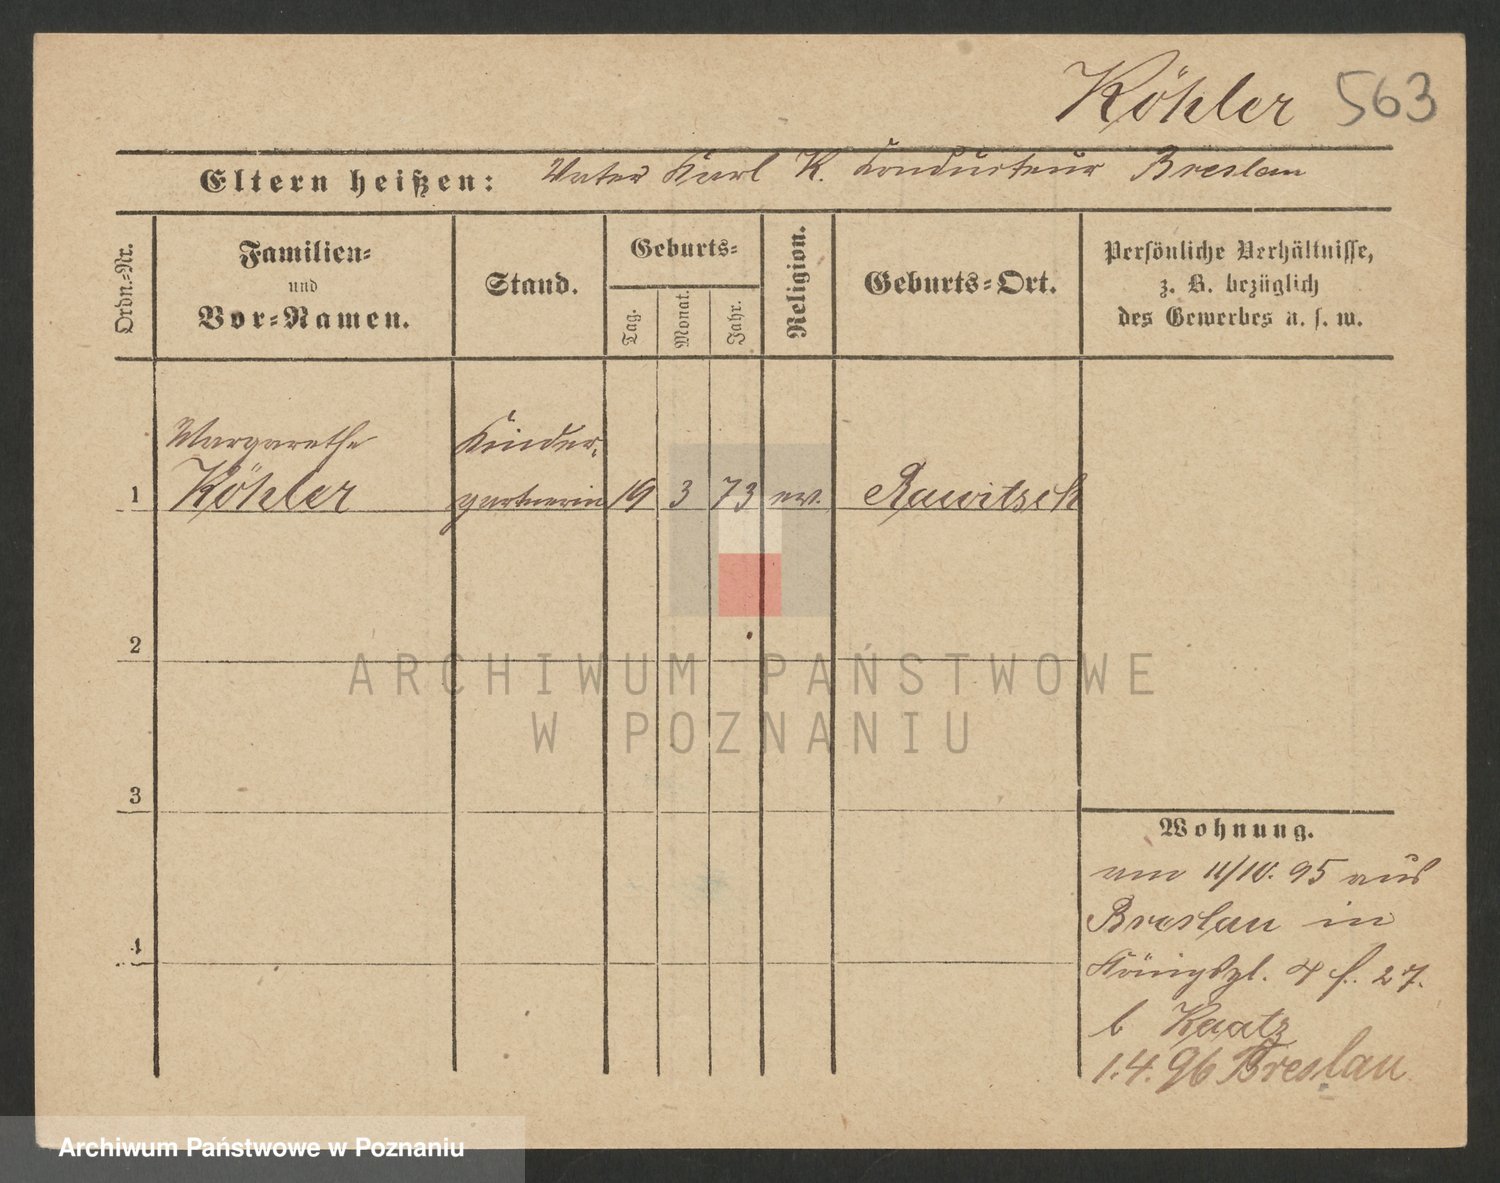 Köhler 563
Eltern heißen: Vater Karl K. Kondukteur Breslau
Ordn.-Nr.
Familien-
und
Vor-Namen.
Stand.
Geburts-
Tag.
Monat.
Jahr.
Religion.
Geburts-Ort.
Persönliche Verhältnisse,
z. B. bezüglich
des Gewerbes u. s. w.
Margarethe Kinder-
1 Köhler gärtnerin 19 3 73 ev. Rawitsch
2
3
4
ARCHIWUM PAŃSTWOWE
W POZNANIU
Wohnung.
am 11/10. 95 aus
Breslau in
Königspl. 27.
b Kaatz
1.4.96 Breslau
Archiwum Państwowe w Poznaniu